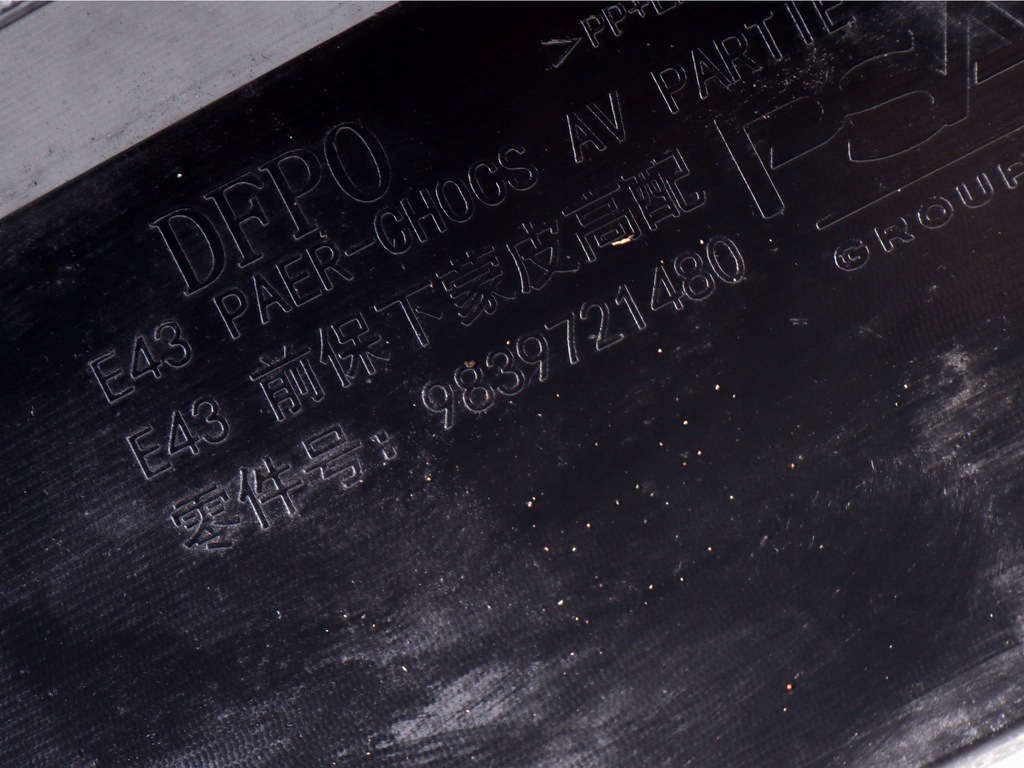 DFPO
E43 PAER-CHOCS AV PARTIE
E43 前保下蒙皮高配
零件号: 9839721480
PSA
GROUP